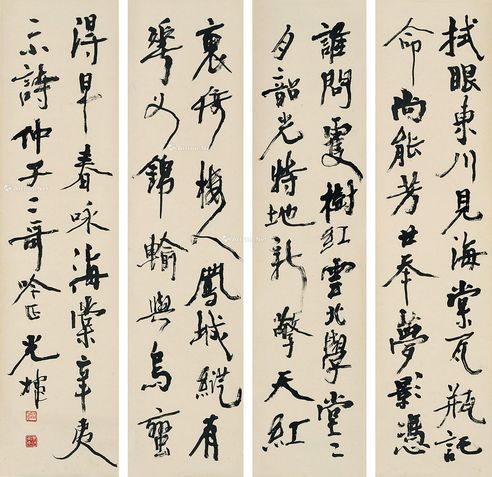 拭眼東川見海棠瓦瓶託
命尚能芳廿年夢影憑
誰問樹紅雲北學堂二
月韶光特地新擎天紅
裏倚樓人鳳城縱有
華如錦輸與烏蠻
得早春詠海棠辛夷
示詩仲子二哥吟正光煒